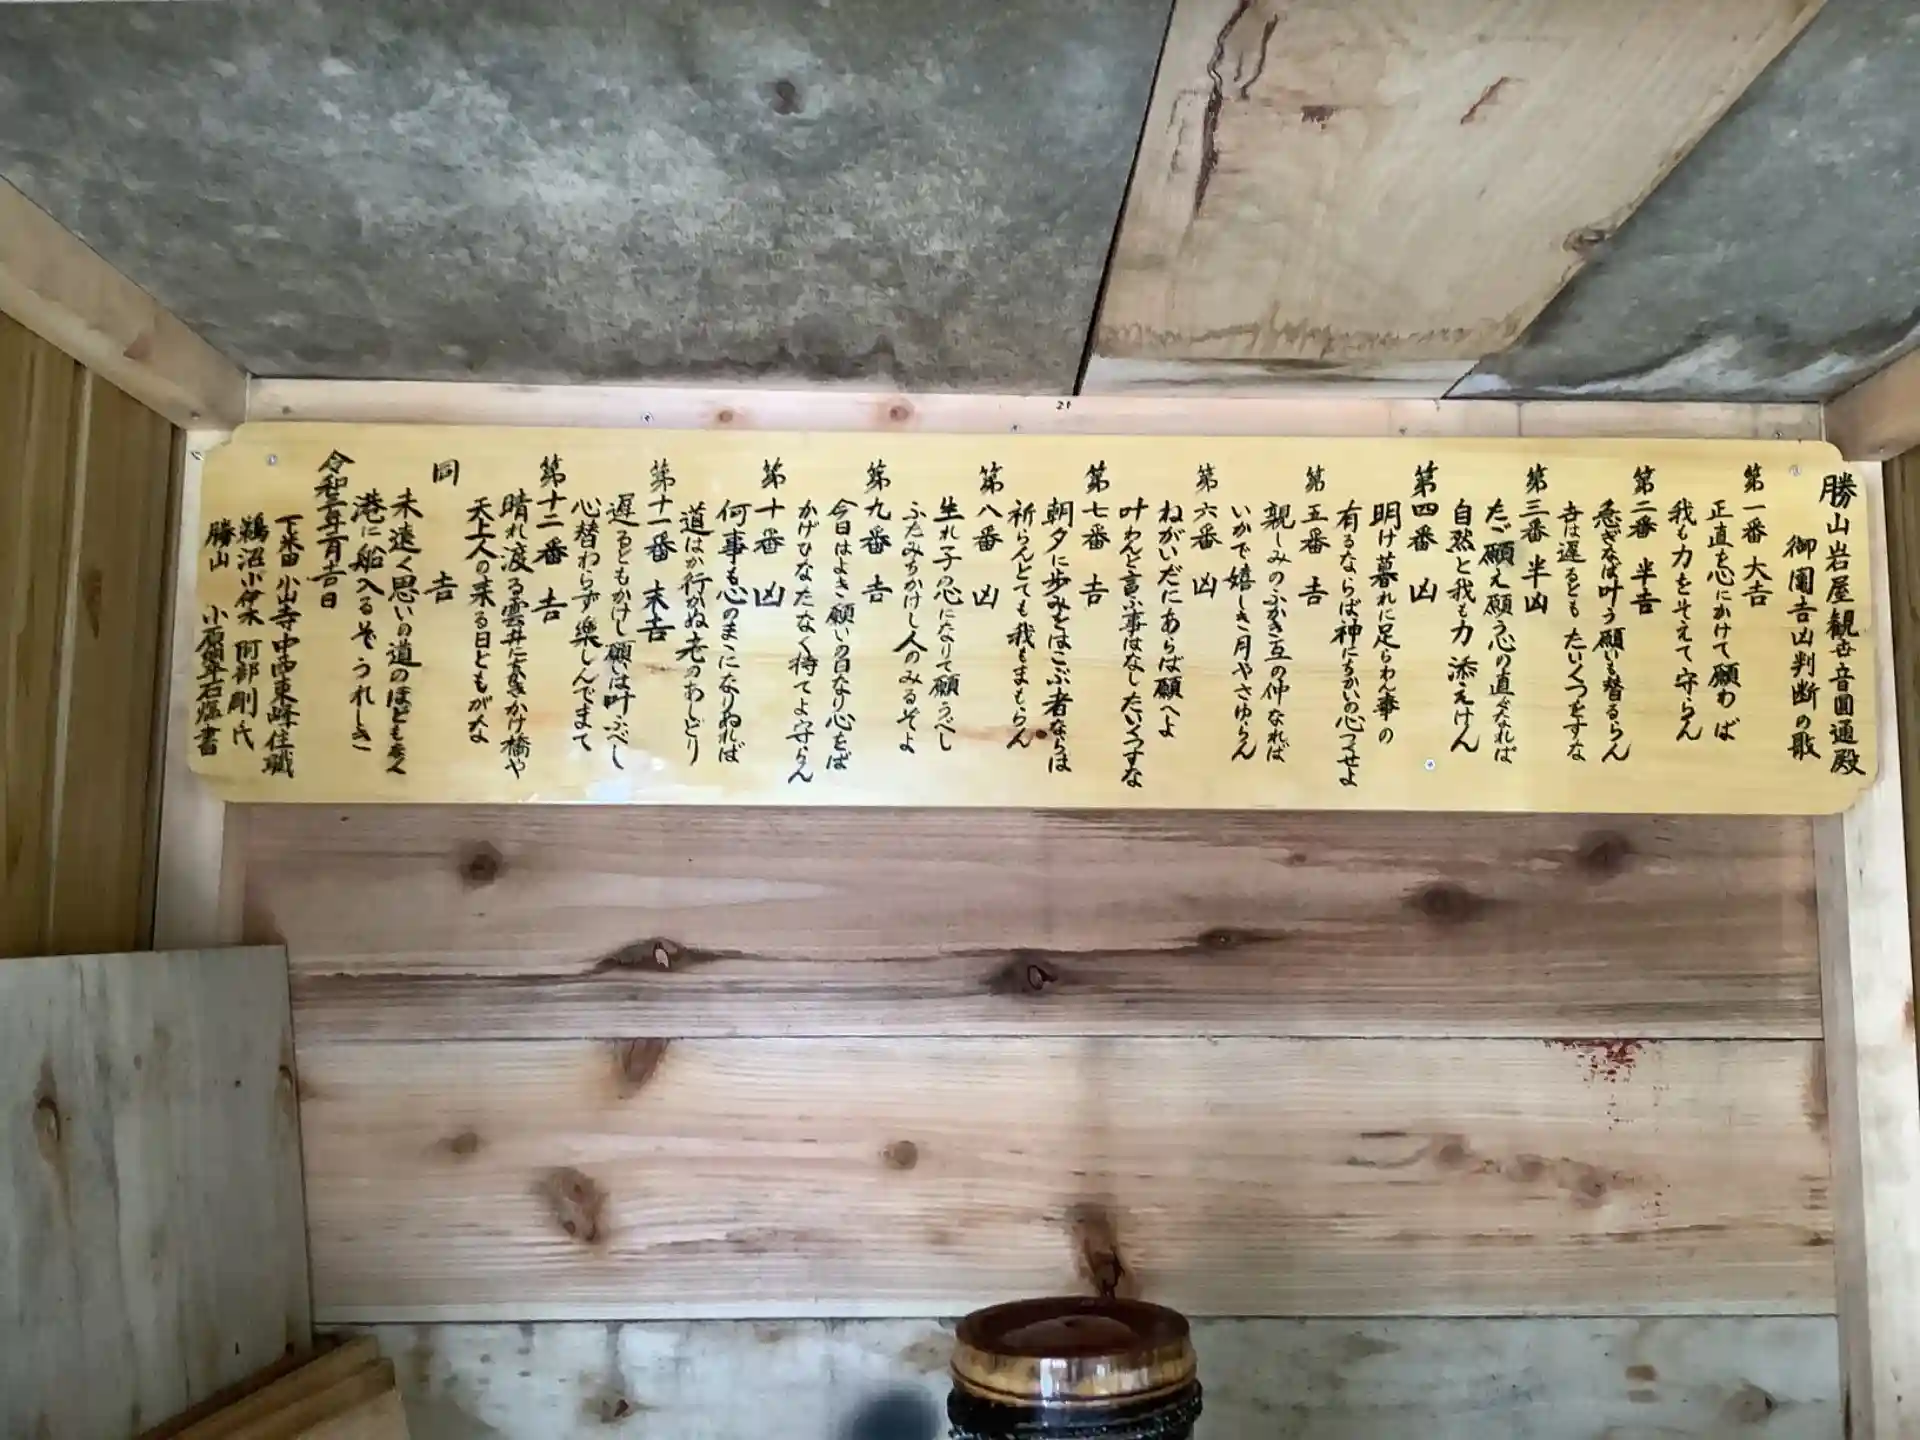 勝山岩屋観世音圓通殿
御圍吉凶判断の歌
第一番 大吉
正直を心にかけて願わば
我も力をそえて守らん
第二番 半吉
急ぎなば叶う願いも替るらん
吉は遅るとも たいくつをすな
第三番 半凶
たゞ願え願う心の直ぐなれば
自然と我も力添えけん
第四番 凶
明け暮れに足らわん事の
有るならば神にちかいの心つせよ
第五番 吉
親しみのふかき互の仲なれば
いかで嬉しき月やさゆらん
第六番 凶
ねがいだにあらば願へよ
叶わんと言ふ事はなしたいくつすな
第七番 吉
朝夕に歩みをはこぶ者ならば
祈らんとても我もまもらん
第八番 凶
生れ子の心になりて願うべし
ふたみちかけし人のみるぞよ
第九番 吉
今日はよき願いの日なり心をば
かげひなたなく待てよ守らん
第十番 凶
何事も心のまゝになりぬれば
道はか行かぬ老のあしどり
第十一番 末吉
遅るともかけし願いは叶ふべし
心替わらず楽しんでまて
第十二番 吉
晴れ渡る雲井にかけ橋や
天上人の来る日ともがな
同 吉
末遠く思いの道のほども
港に船入るぞうれしき
令和三年吉日
下米田 小山寺中西東峰住職
鵜沼小伊木 阿部剛氏
勝山 小石